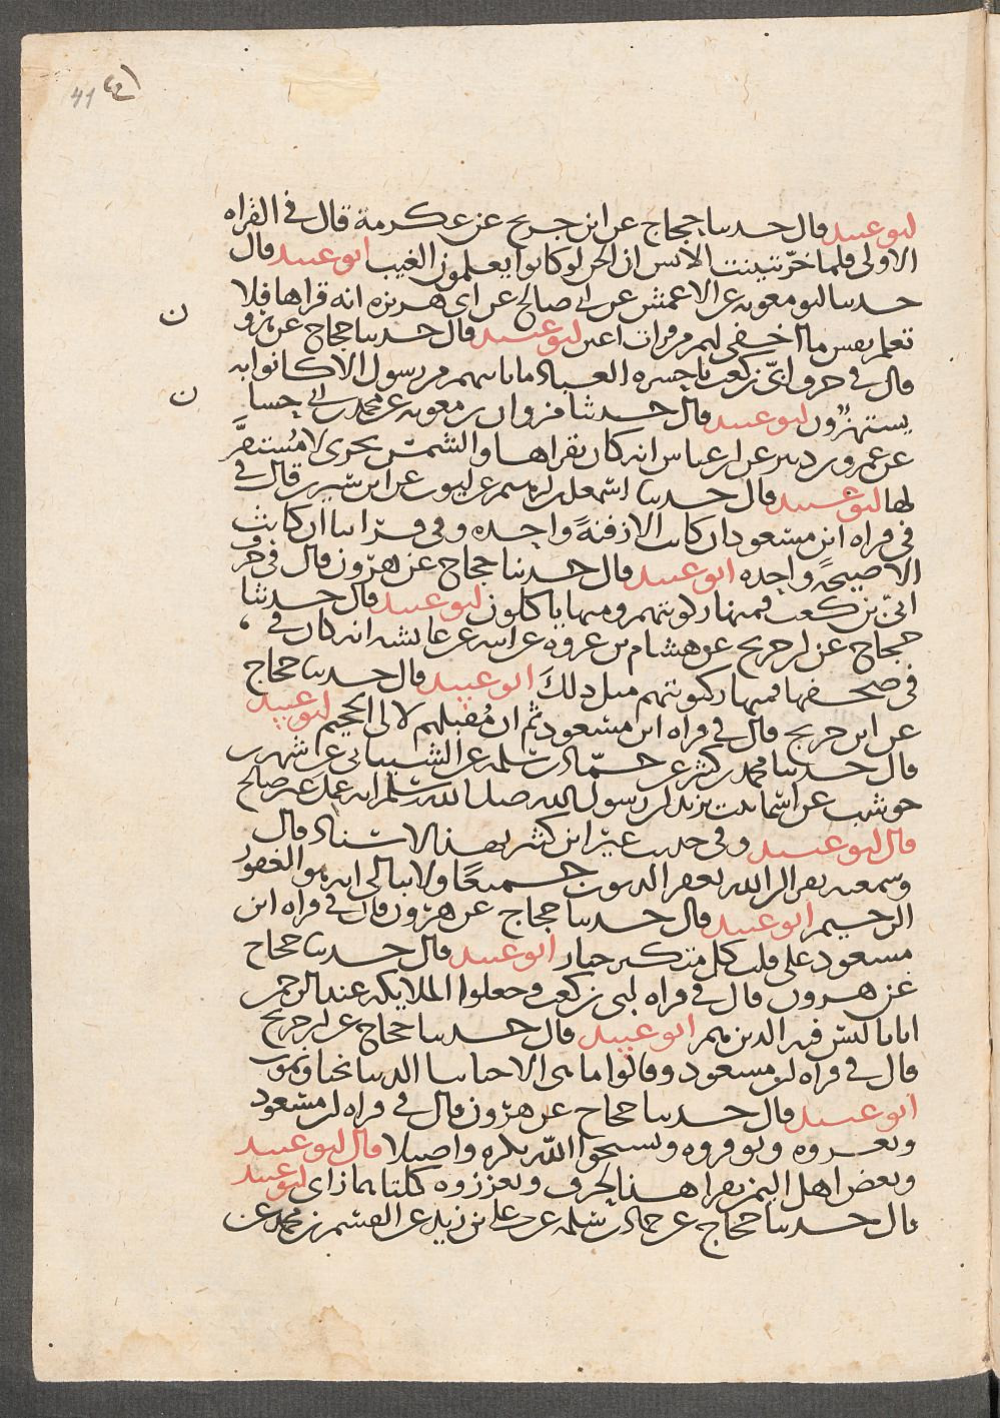 41 ٤١
ابو عبيد قال حدثنا حجاج عن ابن جريج عن عكرمة قال في القراه
الاولى فلما خرّ تبينت الانس ان الجن لو كانوا يعلمون الغيب ابو عبيد قال
حدثنا ابو معويه عن الاعمش عن ابي صالح عن ابي هريره انه قراها فلا
تعلم نفس ما اخفي لهم من قرات اعين ابو عبيد قال حدثنا حجاج عن هرون
قال في حرف ابيّ بن كعب يا حسره العباد ما ياتيهم من رسول الا كانوا به
يستهزؤن ابو عبيد قال حدثنا مروان بن معويه عن محمد بن ابي حسا
عن عمرو بن دينر عن ابن عباس انه كان يقراها والشمس تجري لا مُستقرَّ
لها ابو عبيد قال حدثنا اسمعيل بن ابرهيم عن ايوب عن ابن سيرين قال في
في قراه ابن مسعود ان كانت الا زقيةً واحده وفي قراتنا ان كانت
الا صيحةً واحده ابو عبيد قال حدثنا حجاج عن هرون قال في حرف
ابيّ بن كعب فمنها ركوبتهم ومنها ياكلون ابو عبيد قال حدثنا
حجاج عن ابن جريج عن هشام بن عروه عن ابيه عن عائشه انه كان في
في صحفها فمنها ركوبتهم مثل ذلكَ ابو عبيد قال حدثنا حجاج
عن ابن جريج قال في قراه ابن مسعود ثم ان مُقيلهم لالى الجحيم ابو عبيد
قال حدثنا محمد بن كثير عن حمّاد بن سلمه عن الشيباني عن شهر بن
حوشب عن اسما بنت يزيد ان رسول الله صلى الله وسلم انه عمل غير صالح
قال ابو عبيد وفي حديث غير ابن كثير بهذا الاسناد قال
وسمعته يقرا ان الله يغفر الذنوب جميعًا ولا يبالي انه هو الغفور
الرحيم ابو عبيد قال حدثنا حجاج عن هرون قال في قراه ابن
مسعود على قلب كل متكبر جبار ابو عبيد قال حدثنا حجاج
عن هرون قال في قراه ابي بن كعب وجعلوا الملايكه عند الرحمن
اناثا ليس فيه الذين هم ابو عبيد قال حدثنا حجاج عن ابن جريج
قال في قراه ابن مسعود وقالوا ما هي الا حياتنا الدنيا نحيا ونموت
ابو عبيد قال حدثنا حجاج عن هرون قال في قراه ابن مسعود
وتعزروه وتوقروه وتسبحوا الله بكره واصيلا قال ابو عبيد
وبعض اهل اليمن يقرا هذا الحرف وتعززوه كلتاهما زاي ابو عبيد
قال حدثنا حجاج عن حماد بن سلمه عن علي بن زيد عن القسم بن محمد عن